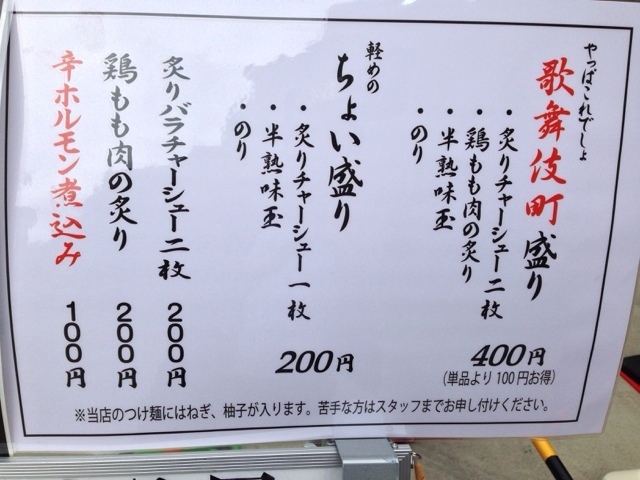 やっぱこれでしょ
歌舞伎町盛り
・炙りチャーシュー二枚
・鶏もも肉の炙り
・半熟味玉
・のり
400円
(単品より100円お得)
軽めの
ちょい盛り
・炙りチャーシュー一枚
・半熟味玉
・のり
200円
炙りバラチャーシュー二枚 200円
鶏もも肉の炙り 200円
辛ホルモン煮込み 100円
※当店のつけ麺にはねぎ、柚子が入ります。苦手な方はスタッフまでお申し付けください。